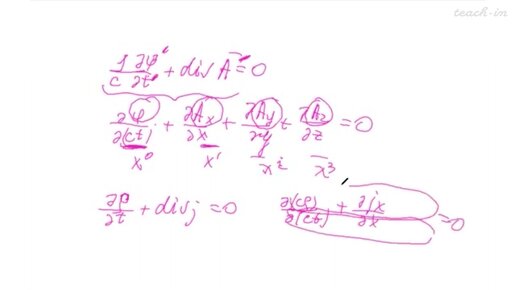 teach-in
1/c ∂φ'/∂t' + div A = 0
∂φ/∂(ct) + ∂Ax/∂x + ∂Ay/∂y + ∂Az/∂z = 0
x⁰ x¹ x² x³
∂ρ/∂t + div j = 0 ∂(cρ)/∂(ct) + ∂jx/∂x = 0